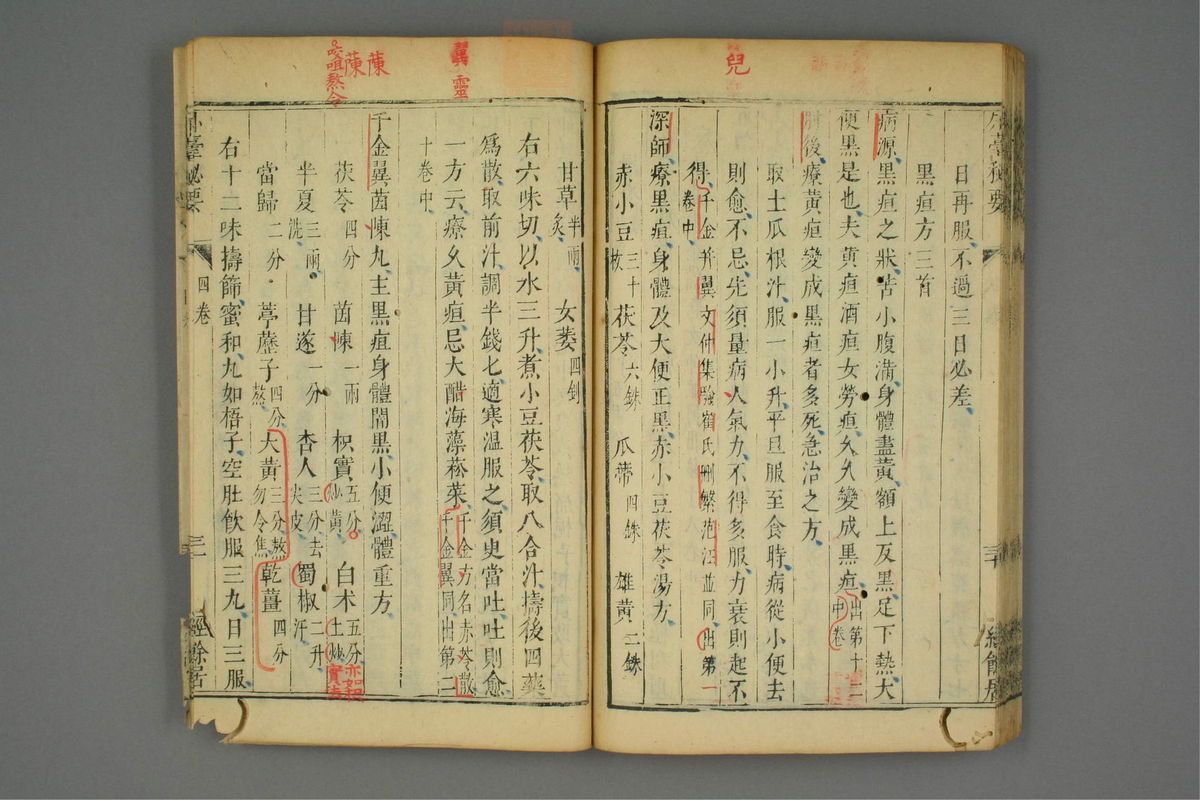 日再服不過三日必差
黒疸方三首
病源黒疸之狀苦小腹滿身體盡黄額上反黒足下熱大
便黒是也夫黄疸酒疸女勞疸久久變成黒疸出第十二
中卷
肘後療黄疸變成黒疸者多死急治之方
取土瓜根汁服一小升平旦服至食時病從小便去
則愈不忌先須量病人氣力不得多服力衰則起不
得千金并翼文仲集驗崔氏刪繁范汪並同出第一
卷中
深師療黒疸身體及大便正黒赤小豆茯苓湯方
赤小豆三十枚 茯苓六銖 瓜蒂四銖 雄黄二銖
甘草半兩炙 女萎四銖
右六味切以水三升煮小豆茯苓取八合汁擣後四藥
爲散取前汁調半錢匕適寒温服之須臾當吐吐則愈
一方云療久黄疸忌大醋海藻菘菜千金方名赤苓散
千金翼同出第二
十卷中
千金翼茵蔯丸主黒疸身體闇黒小便澀體重方
茯苓四分 茵蔯一兩 枳實五分炒黄 白术五分土炒
半夏三兩洗 甘遂一分 杏人三分去尖皮 蜀椒二升汗
當歸二分 葶藶子四分熬 大黄三分熬勿令焦 乾薑四分
右十二味擣篩蜜和丸如梧子空肚飲服三丸日三服
外臺秘要
四卷
三一
經餘居
外臺秘要
三十
經餘居
兒
靈
蔯
蔯
㕮咀熬令